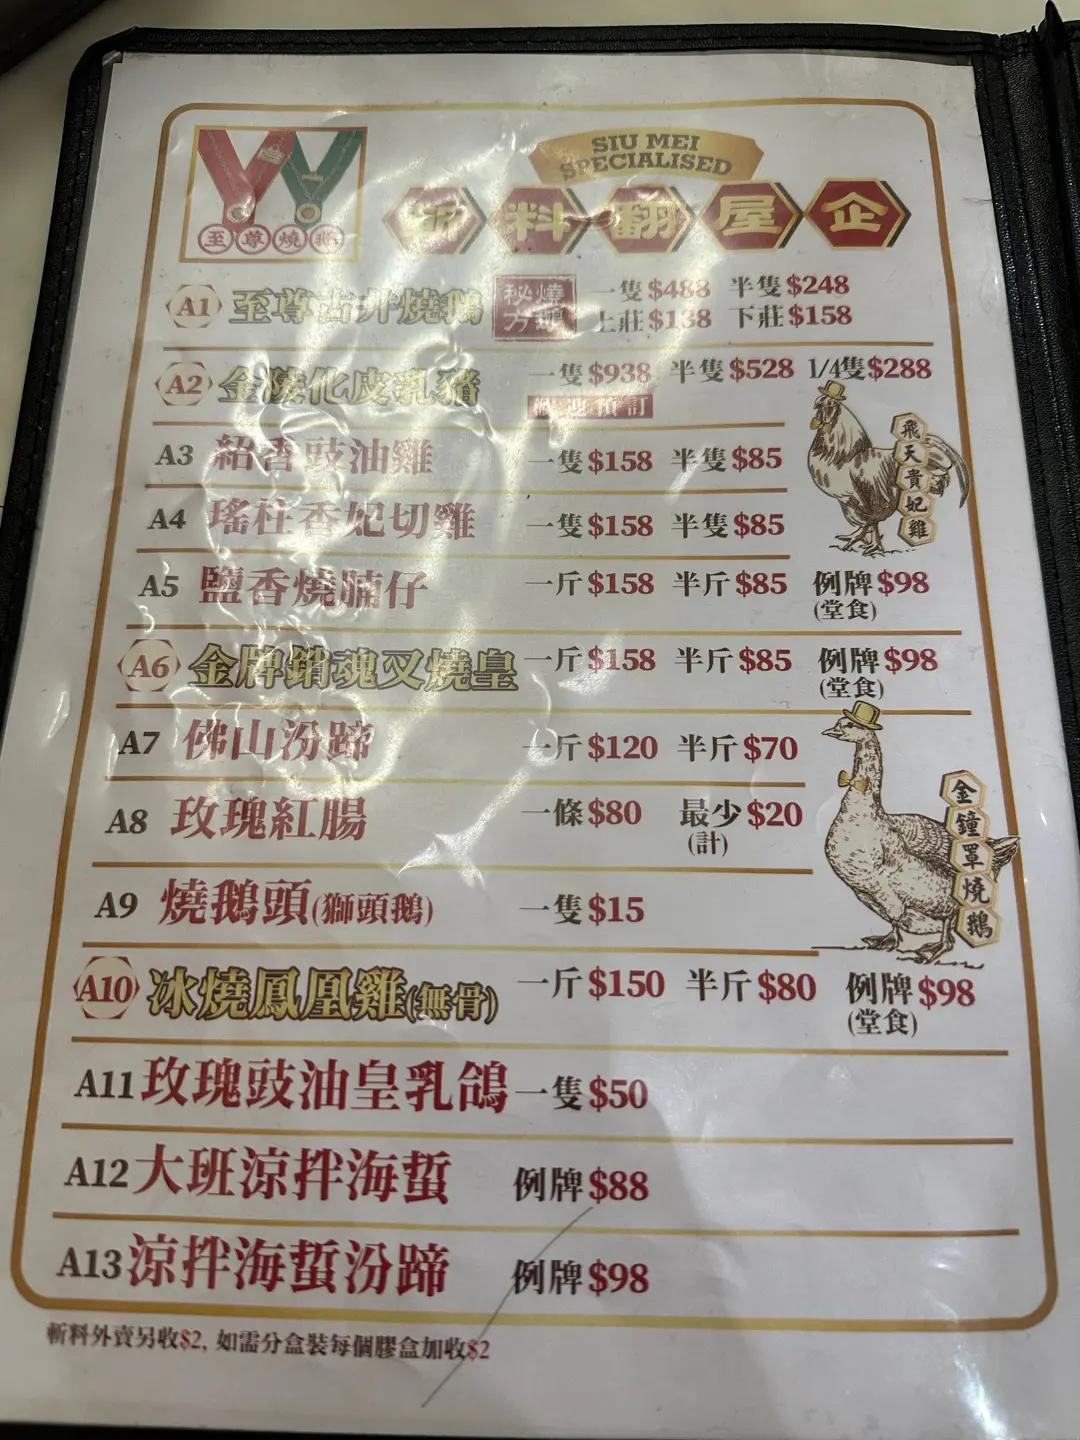 SIU MEI
SPECIALISED
斬料翻屋企
至尊燒鵝
A1 至尊古井燒鵝 秘方燒鵝 一隻$488 半隻$248
上莊$138 下莊$158
A2 金陵化皮乳豬 一隻$938 半隻$528 1/4隻$288
預訂
A3 紹香豉油雞 一隻$158 半隻$85
飛天貴妃雞
A4 瑤柱香妃切雞 一隻$158 半隻$85
A5 鹽香燒腩仔 一斤$158 半斤$85 例牌$98
(堂食)
A6 金牌銷魂叉燒皇 一斤$158 半斤$85 例牌$98
(堂食)
A7 佛山汾蹄 一斤$120 半斤$70
A8 玫瑰紅腸 一條$80 最少$20
(計)
金鐘罩燒鵝
A9 燒鵝頭(獅頭鵝) 一隻$15
A10 冰燒鳳凰雞(無骨) 一斤$150 半斤$80 例牌$98
(堂食)
A11 玫瑰豉油皇乳鴿 一隻$50
A12 大班涼拌海蜇 例牌$88
A13 涼拌海蜇汾蹄 例牌$98
斬料外賣另收$2, 如需分盒裝每個膠盒加收$2